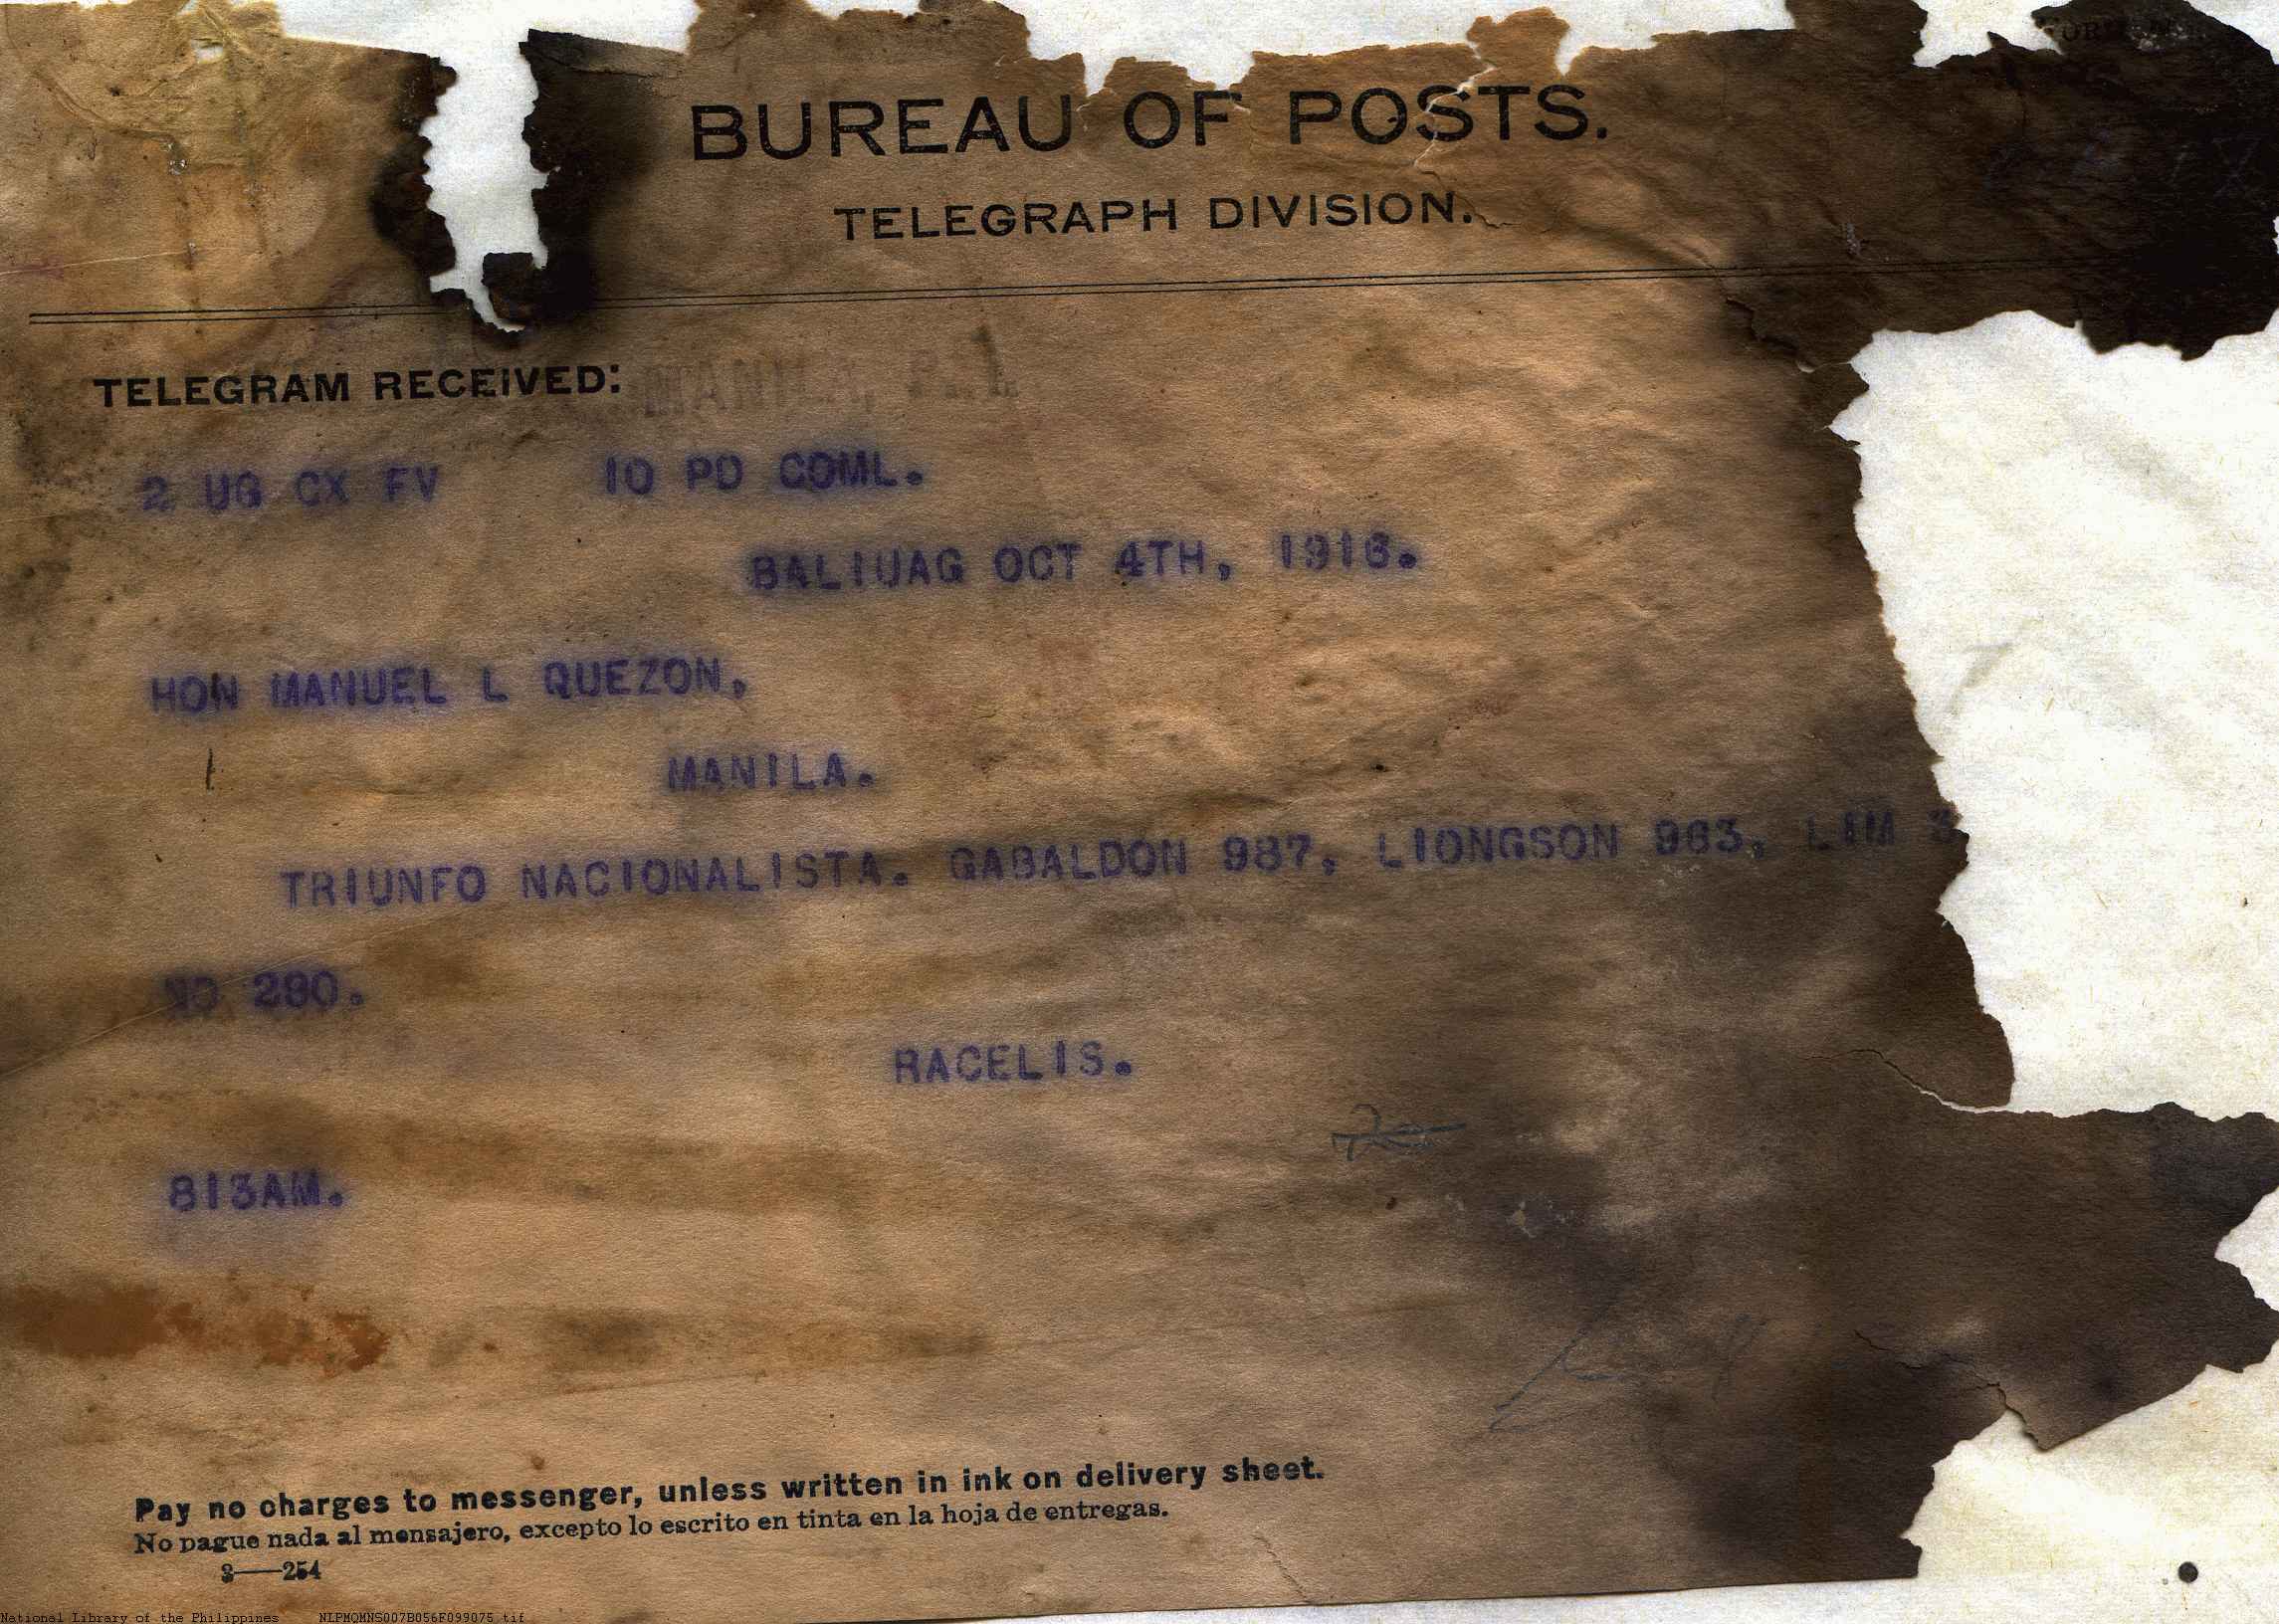 BUREAU OF POSTS.
TELEGRAPH DIVISION.
TELEGRAM RECEIVED:
MANILA, P. I.
2 UG CX FV 10 PD COML.
BALIUAG OCT 4TH, 1916.
HON MANUEL L QUEZON,
MANILA.
TRIUNFO NACIONALISTA. GABALDON 987, LIONGSON 963, LIM
280.
RACELIS.
813AM.
Pay no charges to messenger, unless written in ink on delivery sheet.
No pague nada al mensajero, excepto lo escrito en tinta en la hoja de entregas.
3—254
National Library of the Philippines NLPMQMNS007B056F099075.tif